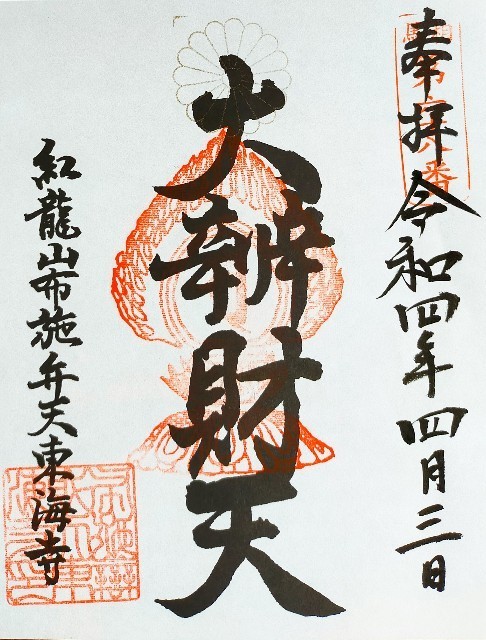 奉拝令和四年四月三日
大辨財天
紅龍山布施弁天東海寺